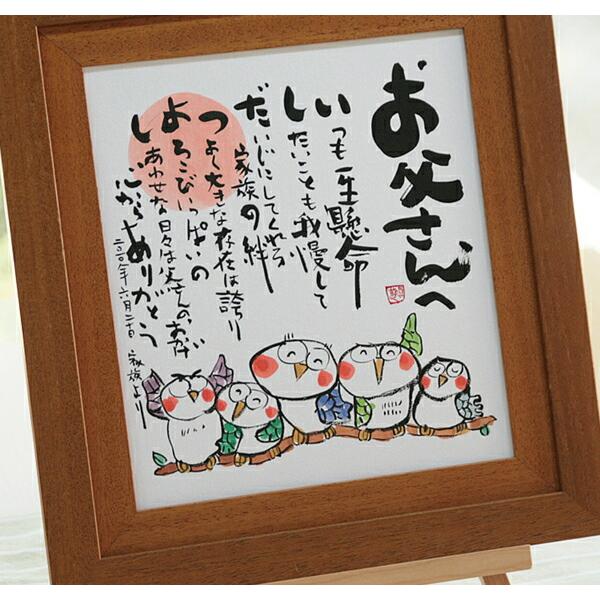 お父さんへ
いつも一生懸命
したいことも我慢して
だいじにしてくれる
家族の絆
つよく大きな存在は誇り
よろこびいっぱいの
しあわせな日々は父さんのおかげ
心からありがとう
二〇一〇年六月二十日
家族より